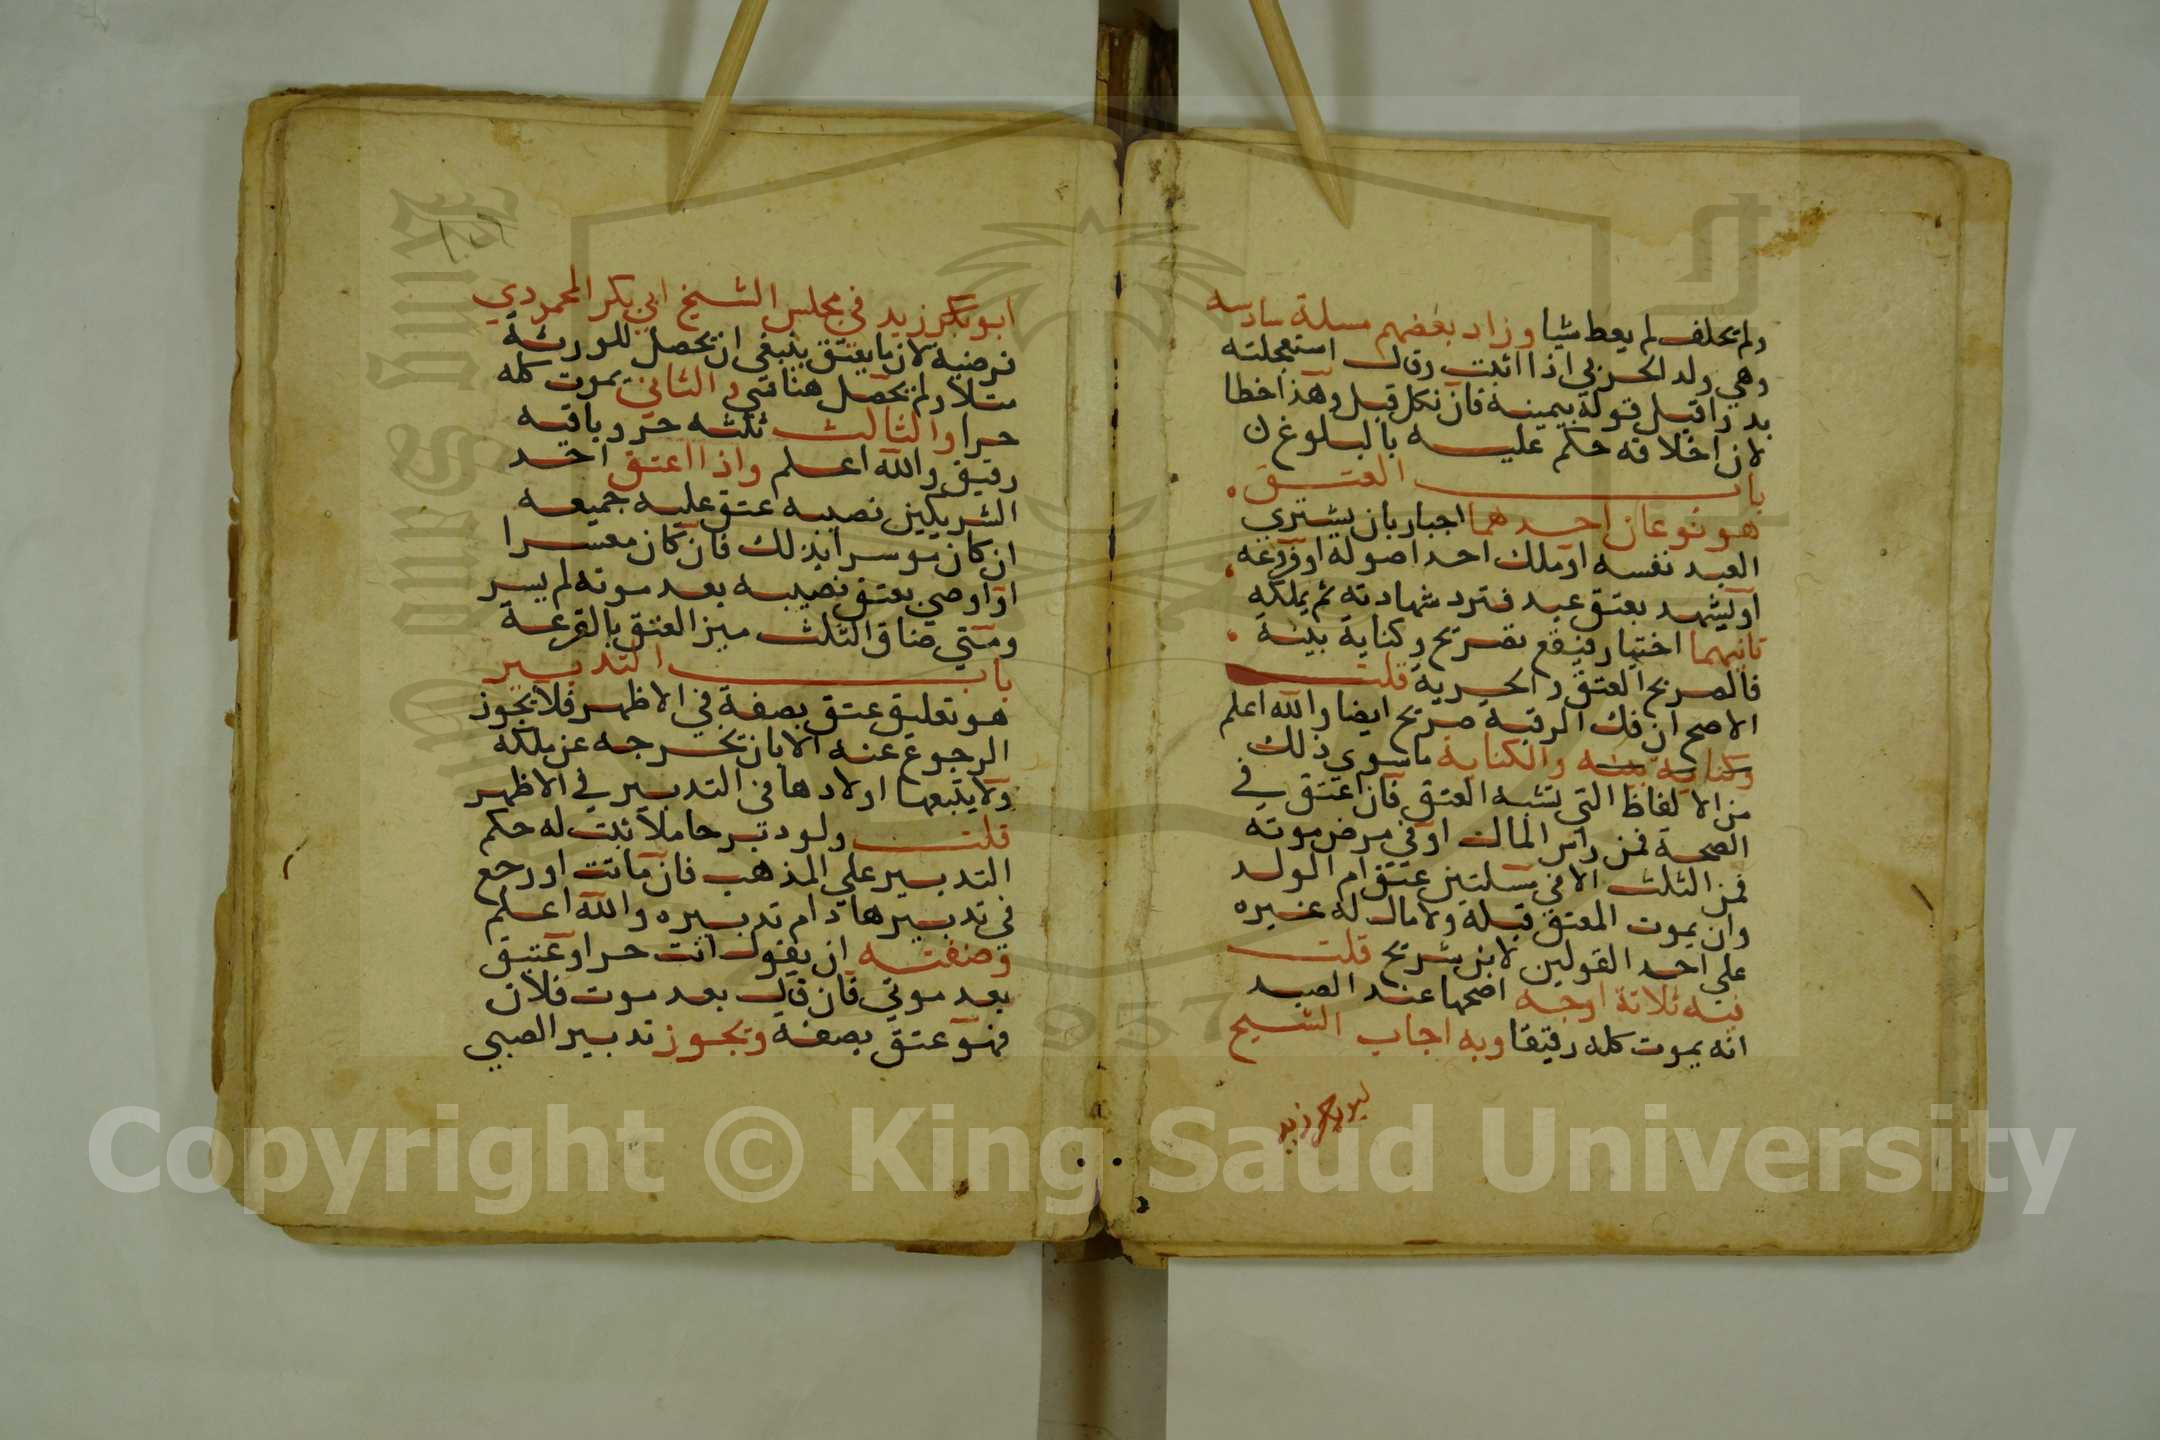 ولم تحلف لم يعط شيا وزاد بعضهم مسلة سادسه
وهي ولد الحربي اذا انبت وقال استعجلته
بدوا قبل قوله بيمينه فان نكل قبل وهذا خطا
لان اخلافه حكم عليه بالبلوغ ن
باب العتق
هو نوعان احدهما اجبار بان يشتري
العبد نفسه او ملك احد اصوله او فروعه
او يشهد بعتق عبد فترد شهادته ثم يملكه
ثانيهما اختيار فيقع بصريح وكناية بينة
فالصريح العتق والحرية قلت
الاصح ان فك الرقبة صريح ايضا والله اعلم
وكناية بينه والكناية ما سوى ذلك
من الالفاظ التي تشبه العتق فان اعتق في
الصحة فمن راس المال او في مرض موته
فمن الثلث الا في مسلتين عتق ام الولد
وان يموت المعتق قبله ولا مال له غيره
على احد القولين لابن شريح قلت
فيه ثلاثة اوجه اصحها عند الصيد
انه يموت كله رقيقا وبه اجاب الشيخ
ابو بكر زيد
ابو بكر زيد في مجلس الشيخ ابي بكر المحمودي
فرضيه لان ما يعتق ينبغي ان يحصل للورثة
مثلا ولم يحصل هنا شي والثاني يموت كله
حرا والثالث ثلثه حر وباقيه
رقيق والله اعلم واذا اعتق احد
الشريكين نصيبه عتق عليه جميعه
ان كان موسرا بذلك فان كان معسرا
او اوصي بعتق نصيبه بعد موته لم يسر
ومتي ضاق الثلث ميز العتق بالقرعة
باب التدبير
هو تعليق عتق بصفة في الاظهر فلا يجوز
الرجوع عنه الا بان تخرجه عن ملكه
ولا يتبعها اولادها في التدبير في الاظهر
قلت ولو دبر حاملا ثبت له حكم
التدبير علي المذهب فان ماتت او رجع
في تدبيرها دام تدبيره والله اعلم
وصفته ان يقول انت حر او عتيق
بعد موتي فان قال بعد موت فلان
فهو عتق بصفة ويجوز تدبير الصبي
Copyright © King Saud University
1957